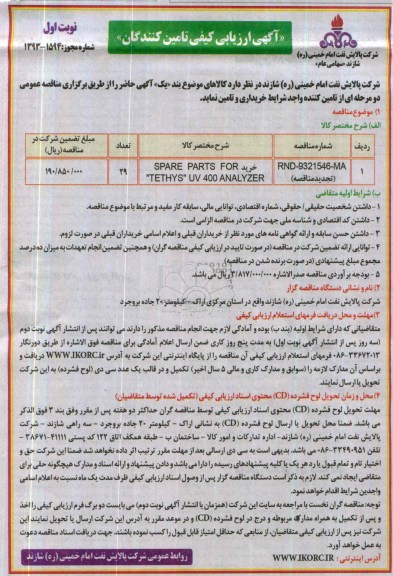 نوبت اول
«آگهی ارزیابی کیفی تامین کنندگان»
شماره مجوز: ۱۵۹۴-۱۳۹۳
شرکت پالایش نفت امام خمینی (ره)
شازند «سهامی عام»
شرکت پالایش نفت امام خمینی (ره) شازند در نظر دارد کالاهای موضوع بند «یک» آگهی حاضر را از طریق برگزاری مناقصه عمومی
دو مرحله ای از تامین کننده واجد شرایط خریداری و تامین نماید.
۱) موضوع مناقصه
الف) شرح مختصر کالا
ردیف شماره مناقصه شرح مختصر کالا تعداد مبلغ تضمین شرکت در مناقصه (ریال)
۱ RND-9321546-MA (تجدید مناقصه) خرید SPARE PARTS FOR "TETHYS" UV 400 ANALYZER ۲۹ ۱۹۰/۸۵۰/۰۰۰
ب) شرایط اولیه متقاضی
۱ - داشتن شخصیت حقیقی/حقوقی، شماره اقتصادی، توانایی مالی، سابقه کار مفید و مرتبط با موضوع مناقصه.
۲ - داشتن کد اقتصادی و شناسه ملی جهت شرکت در مناقصه الزامی است.
۳ - داشتن حسن سابقه و ارائه گواهی نامه های مورد نظر از خریداران قبلی و اعلام اسامی خریداران قبلی در صورت لزوم.
۴ - توانایی ارائه تضمین شرکت در مناقصه (در صورت تایید در ارزیابی کیفی مناقصه گران) و همچنین تضمین انجام تعهدات به میزان ده درصد
مجموع مبلغ پیشنهادی (در صورت برنده شدن در مناقصه)
۵ - بودجه برآوردی مناقصه صدرالاشاره ۳/۸۱۷/۰۰۰/۰۰۰ ریال می باشد.
۲) نام و نشانی دستگاه مناقصه گزار
شرکت پالایش نفت امام خمینی (ره) شازند واقع در استان مرکزی اراک - کیلومتر ۲۰ جاده بروجرد
۳) مهلت و محل دریافت فرمهای استعلام ارزیابی کیفی
متقاضیانی که دارای شرایط اولیه (بند ب) بوده و آمادگی لازم جهت انجام مناقصه مذکور را دارند می توانند پس از انتشار آگهی نوبت دوم
(روز پس از انتشار آگهی نوبت اول) به مدت پنج روز کاری ضمن ارسال اعلام آمادگی برای مناقصه فوق الاشاره از طریق دورنگار
۳۳۶۷۲۰۱۳-۰۸۶ فرمهای استعلام ارزیابی کیفی آن مناقصه را از پایگاه اینترنتی این شرکت به آدرس WWW.IKORC.IR دریافت و
براساس آن مدارک لازمه را (سوابق و مدارک کاری و مالی ۵ سال اخیر) تکمیل و در قالب یک عدد سی دی (لوح فشرده) به این شرکت
تحویل یا ارسال نمایند.
۴) محل و زمان تحویل لوح فشرده (CD) محتوی اسناد ارزیابی کیفی (تکمیل شده توسط متقاضیان)
مهلت تحویل لوح فشرده (CD) محتوی اسناد ارزیابی کیفی توسط مناقصه گران حداکثر دو هفته پس از مقرر وفق بند ۳ فوق الذکر
می باشد. ضمنا محل تحویل یا ارسال لوح فشرده (CD) به نشانی اراک - کیلومتر ۲۰ جاده بروجرد - سه راهی شازند - شرکت
پالایش نفت امام خمینی (ره) شازند - اداره تدارکات و امور کالا - ساختمان ب - طبقه همکف اتاق ۱۲۲ کد پستی ۴۱۱۱۱-۳۸۶۷۱
تلفن ۳۳۴۹۰۹۵۱-۰۸۶ می باشد. بدیهی است به سی دی ارسالی بعد از مهلت مقرر ترتیب اثر داده نخواهد شد ضمنا این شرکت حق و
اختیار تام و تمام قبول یا رد هر یک یا کلیه پیشنهادهای رسیده را دارا می باشد و دادن پیشنهاد و ارائه اسناد و مدارک هیچگونه حقی برای
متقاضی ایجاد نمی کند. لازم به ذکر است دستگاه مناقصه گزار پس از وصول اسناد ارزیابی کیفی ظرف مدت یک ماه نسبت به اعلام اسامی
واجدین شرایط اقدام خواهد نمود.
توجه: مناقصه گران نخست با مراجعه به سایت این شرکت (همزمان با انتشار آگهی نوبت دوم) می بایست دو برگ فرم ارزیابی کیفی را اخذ
و پس از تکمیل به همراه مدارک مربوطه و درج در لوح فشرده (CD) و در موعد مقرر به آدرس این شرکت ارسال یا تحویل نمایند این
شرکت نیز پس از ارزیابی کیفی متقاضیان، از منابعی که حداقل امتیاز قابل قبول را کسب نموده باشند. جهت دریافت اسناد مناقصه دعوت
به عمل خواهد آورد.
آدرس اینترنتی: WWW.IKORC.IR
روابط عمومی شرکت پالایش نفت امام خمینی (ره) شازند